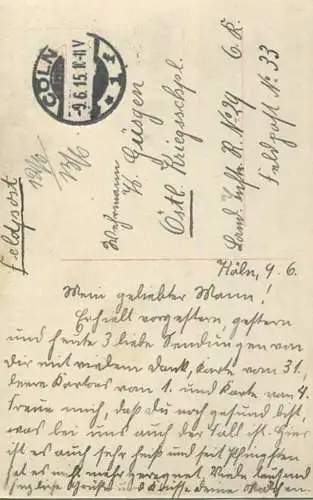 Feldpost
CÖLN
-9.6.15.11-12V
* 1 *
13/6
Wehrmann
H. Güsgen
Östl. Kriegsschpl.
Land. Inftr. R. No 29 6. K.
Feldpost No 33
Köln, 9. 6.
Mein geliebter Mann!
Erhielt vorgestern, gestern
und heute 3 liebe Sendungen von
Dir mit vielem Dank, Karte vom 31.,
leere Kartons vom 1. und Karte vom 4.
Freue mich, daß du noch gesund bist,
was bei uns auch der Fall ist. Hier
ist es auch sehr heiß und seit Pfingsten
hat es nicht mehr geregnet. Viele tausend
herzliche Grüße und Küsse deine